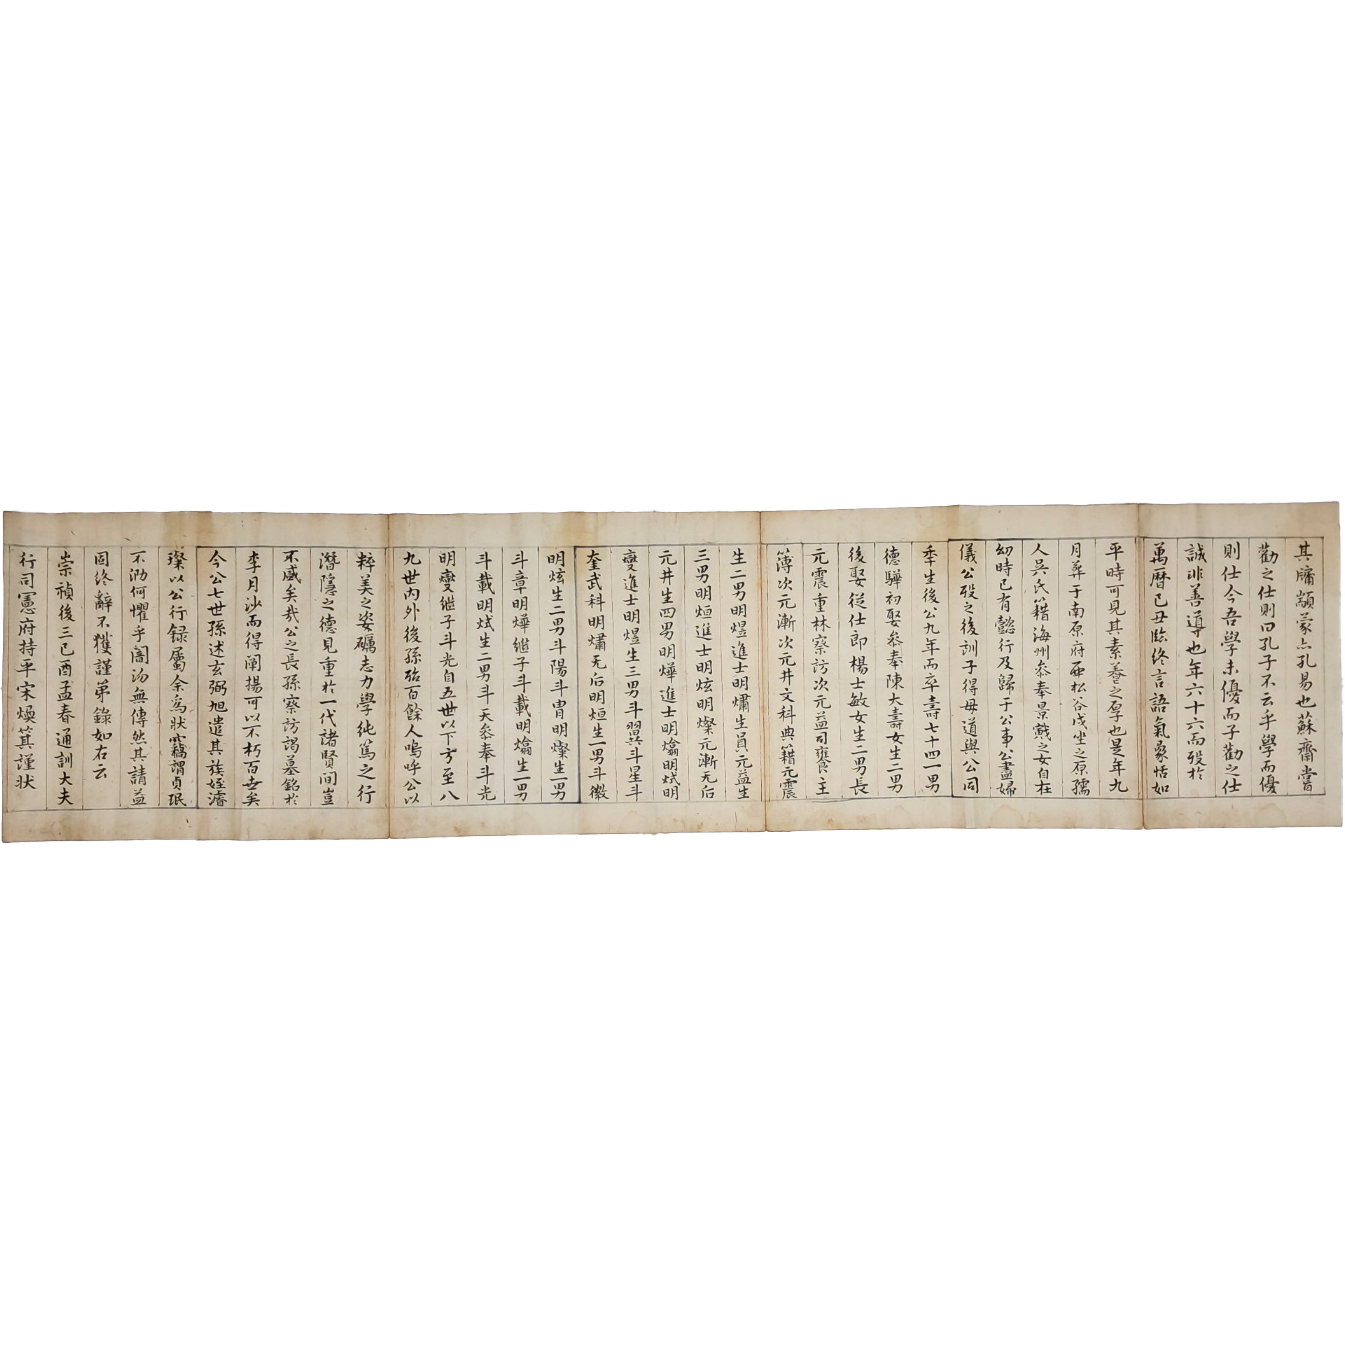 其牖顓蒙亦孔易也蘇齋嘗
勸之仕則曰孔子不云乎學而優
則仕今吾學未優而子勸之仕
誠非善導也年六十六而歿於
萬曆己丑臨終言語氣象恬如
平時可見其素養之厚也是年九
月葬于南原府巫松谷戌坐之原孺
人吳氏籍海州參奉景戭之女自在
幼時已有懿行及歸于公事公盡婦
儀公歿之後訓子得母道與公同
季生後公九年而卒壽七十四一男
德驊初娶參奉陳大壽女生二男
後娶從仕郎楊士敏女生二男長
元震重林察訪次元益司饔主
簿次元漸次元井文科典籍元震
生二男明煜進士明熽生員元益生
三男明烜進士明炫明燦元漸无后
元井生四男明燁進士明熻明烒明
燮進士明煜生三男斗翼斗星斗
奎武科明熽无后明烜生一男斗徽
明炫生二男斗陽斗胄明燦生一男
斗章明燁継子斗載明熻生一男
斗載明烒生二男斗天參奉斗光
明燮継子斗光自五世以下方至八
九世內外後孫殆百餘人嗚呼公以
粹美之姿礪志力學純篤之行
潛隱之德見重於一代諸賢間豈
不盛矣哉公之長孫察訪謁墓銘於
李月沙而得闡揚可以不朽百世矣
今公七世孫述玄弼旭遣其族姪濬
璨以公行録屬余爲狀竊謂貞珉
不泐何懼乎闇汤無傳然其請益
固終辭不獲謹第錄如右云
崇禎後三己酉孟春通訓大夫
行司憲府持平宋煥箕謹狀